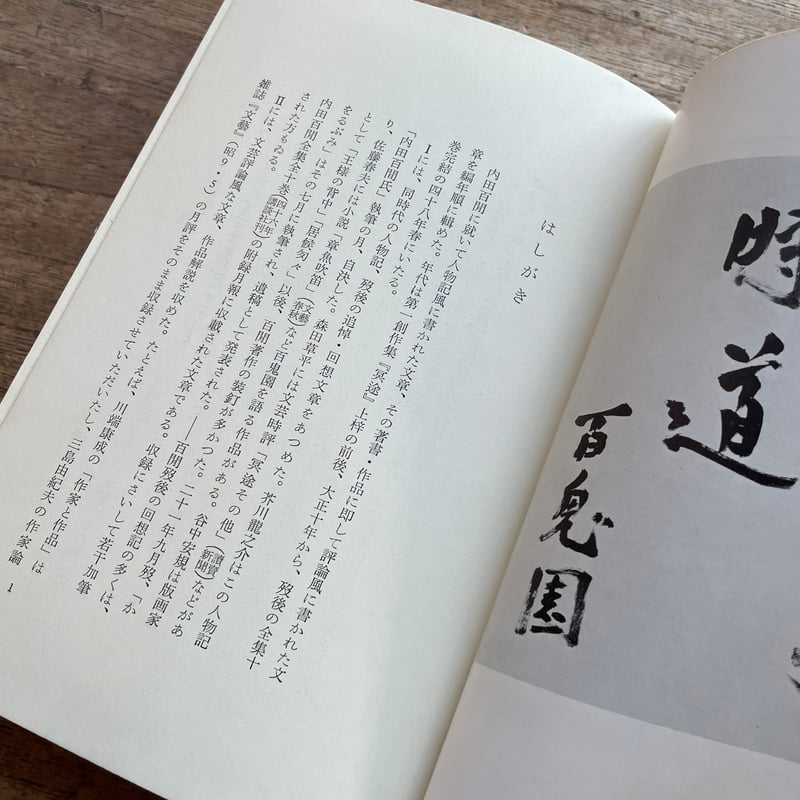 時
道
百鬼園
はしがき
内田百閒に就いて人物記風に書かれた文章、その著書・作品に即して評論風に書かれた文
章を編年順に輯めた。年代は第一創作集『冥途』上梓の前後、大正十年から、歿後の全集十
巻完結の四十八年春にいたる。
Ⅰには、同時代の人物記、歿後の追悼・回想文章をあつめた。芥川龍之介はこの人物記
「内田百閒氏」執筆の月、自決した。森田草平には文芸時評「冥途その他」(讀賣新聞)などがあ
り、佐藤春夫には小説「章魚吹笛」(文藝春秋)など百鬼園を語る作品がある。谷中安規は版画家
として「王様の背中」「居候匆々」以後、百閒著作の装釘が多かつた。二十一年九月歿、「か
をるぶみ」はその七月に執筆され、遺稿として発表された。――百閒歿後の回想記の多くは、
内田百閒全集全十巻(四十六年講談社刊)の附録月報に収載された文章である。収録にさいして若干加筆
された方もゐる。
Ⅱには、文芸評論風な文章、作品解説を収めた。たとえば、川端康成の「作家と作品」は
雑誌『文藝』(昭9・5)の月評をそのまま収録させていただいたし、三島由紀夫の作家論
1